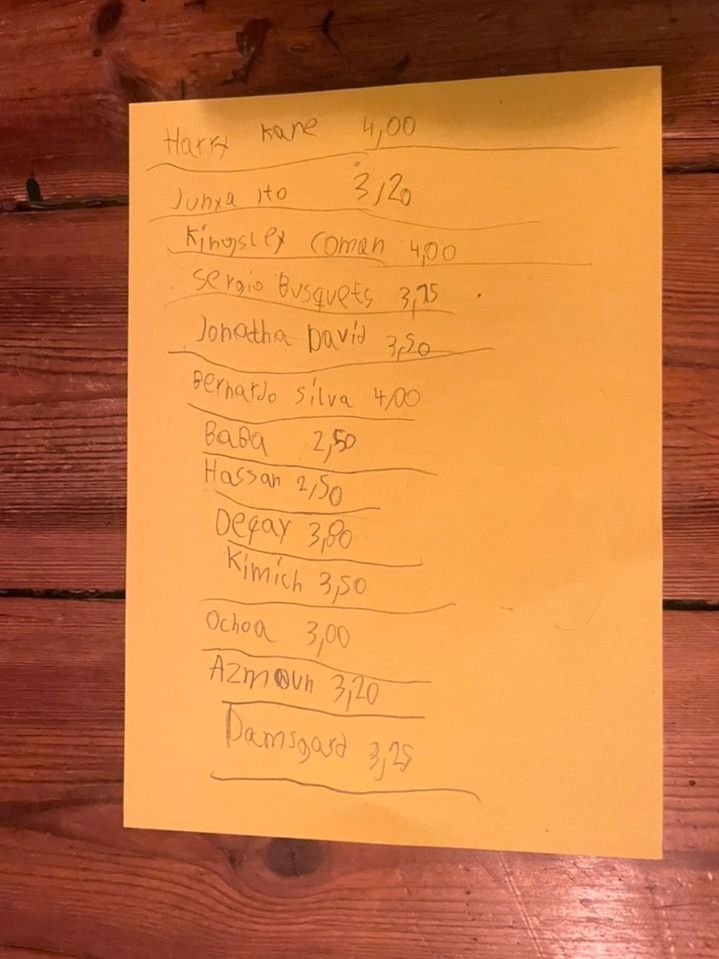 Harry Kane 4,00
Junya Ito 3,20
Kingsley Coman 4,00
Sergio Busquets 3,75
Jonatha David 3,50
Bernardo Silva 4,00
BaBa 2,50
Hassan 2,50
Degay 3,80
Kimich 3,50
Ochoa 3,00
Azmoun 3,20
Damsgard 3,25